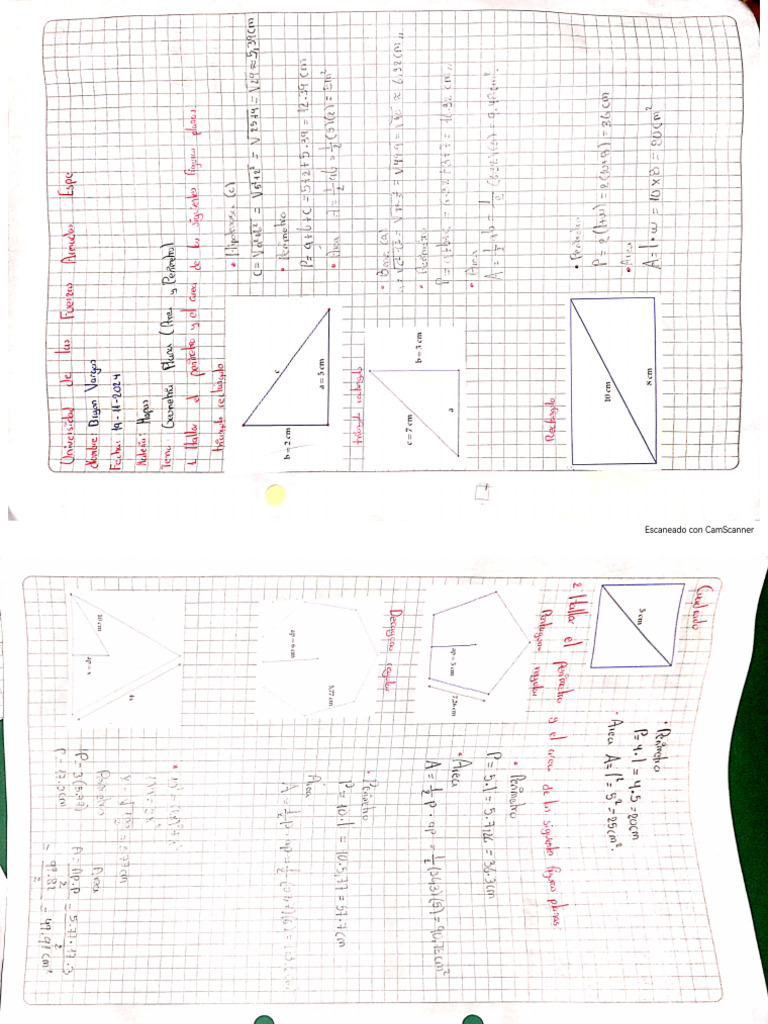 Universidad de las Fuerzas Armadas Espe
Nombre: Bryan Vargas
Fecha: 19-11-2024
Materia: Mapas
Tema: Geometria Plana (Area y Perimetro)
1. Hallar el perimetro y el area de las siguientes figuras planas.
triángulo rectángulo
b = 2 cm
c
a = 5 cm
• Hipotenusa (c)
c = √a²+b² = √5²+2² = √25+4 = √29 ≈ 5,39cm
• Perimetro
P= a+b+c = 5+2+5.39 = 12.39 cm
• Area
A = 1/2 ab = 1/2 (5)(2) = 5m²
triángulo rectangulo
c = 7 cm
b = 3 cm
a
• Base (a)
• Perimetro
• Area
Rectangulo
10 cm
8 cm
• Perimetro
P = 2(l+w) = 2(10+8) = 36cm
• Area
A= l·w = 10×8 = 80cm²
Escaneado con CamScanner
Cuadrado
5 cm
• Perimetro
P= 4.l = 4.5 = 20cm
• Area A= l² = 5² = 25cm²
2. Hallar el perimetro y el area de la siguiente figura planas
Pentagono regular
ap = 5 cm
7.26 cm
• Perimetro
P= 5.l = 5.7,26 = 36.3cm
• Area
A= 1/2 P . ap = 1/2 (36,3)(5) = 90,75cm²
Decagono regular
ap = 6 cm
5.77 cm
• Perimetro
P= 10.l = 10.5,77 = 57.7cm
Area
10 cm
ap = 4
Perimetro
Area
P = 17.3cm
A= Ap.P/2 = 5.77.17.3/2
= 99.82/2 = 49.91cm²